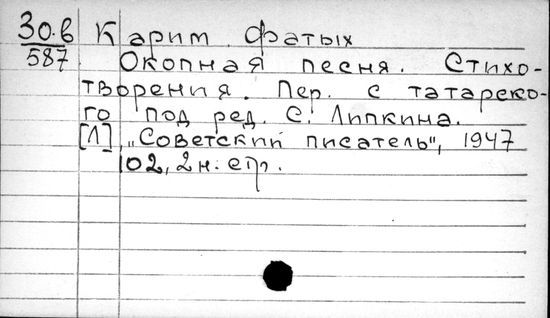 30.6 Карим Фатых
587 Окопная песня. Стихо-
творения. Пер. с татарско-
го под ред. С. Липкина.
[Л], „Советский писатель", 1947
102, 2 н. стр.